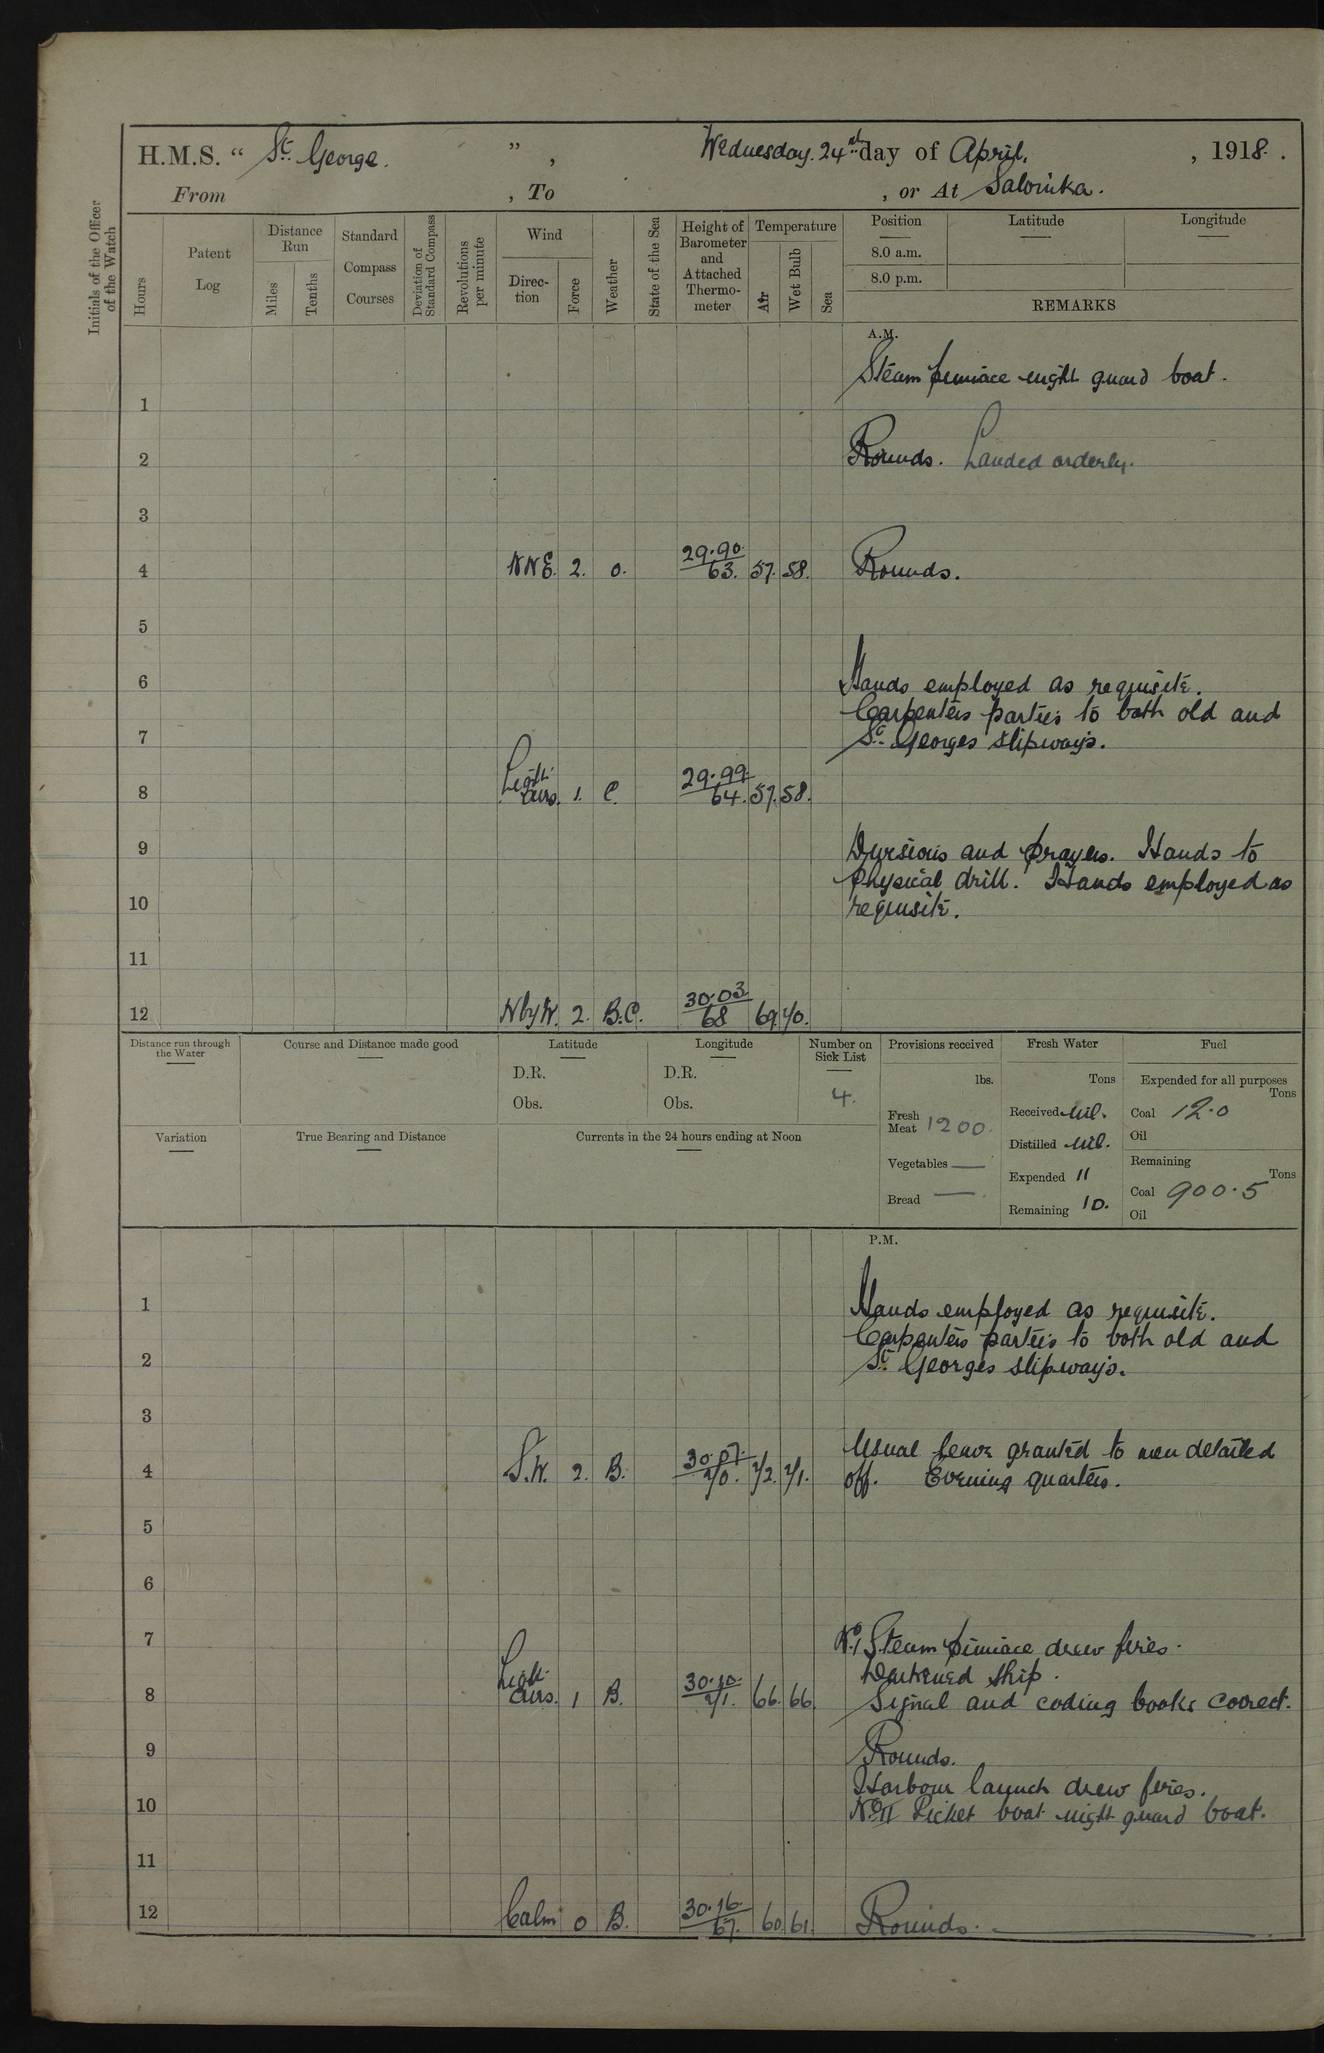 H.M.S. “ St. George. ” , Wednesday. 24th day of April. , 1918 .
From , To , or At Salonika.
Initials of the Officer of the Watch
Hours
Patent Log
Distance Run
Miles
Tenths
Standard Compass Courses
Deviation of Standard Compass
Revolutions per minute
Wind
Direction
Force
Weather
State of the Sea
Height of Barometer and Attached Thermometer
Temperature
Air
Wet Bulb
Sea
Position Latitude Longitude
8.0 a.m.
8.0 p.m.
REMARKS
A.M.
Steam pinnace night guard boat.
1
2 Rounds. Landed orderly.
3
4 NNE. 2. o. 29.90. 63. 57. 58. Rounds.
5
6 Hands employed as requisite.
Carpenters parties to both old and
7 St. Georges slipways.
8 Light airs. 1. C. 29.99. 64. 57. 58.
9 Divisions and prayers. Hands to
Physical drill. Hands employed as
10 requisite.
11
12 NbyW. 2. B.C. 30.03. 68 69. 70.
Distance run through the Water
Course and Distance made good
Latitude
D.R.
Obs.
Longitude
D.R.
Obs.
Number on Sick List
4.
Provisions received
lbs.
Fresh Meat 1200.
Vegetables —
Bread —
Fresh Water
Tons
Received Nil.
Distilled Nil.
Expended 11
Remaining 10.
Fuel
Expended for all purposes
Tons
Coal 12.0
Oil
Remaining
Tons
Coal 900.5
Oil
Variation
True Bearing and Distance
Currents in the 24 hours ending at Noon
P.M.
1 Hands employed as requisite.
Carpenters parties to both old and
2 St. Georges slipways.
3
Usual leave granted to men detailed
4 S.W. 2. B. 30.07. 70. 72. 71. off. Evening quarters.
5
6
7 No. 1 Steam pinnace drew fires.
Darkened ship.
8 Light airs. 1 B. 30.10. 71. 66. 66. Signal and coding books correct.
9 Rounds.
Harbour launch drew fires.
10 No. II Picket boat night guard boat.
11
12 Calm 0 B. 30.16. 67. 60. 61. Rounds.